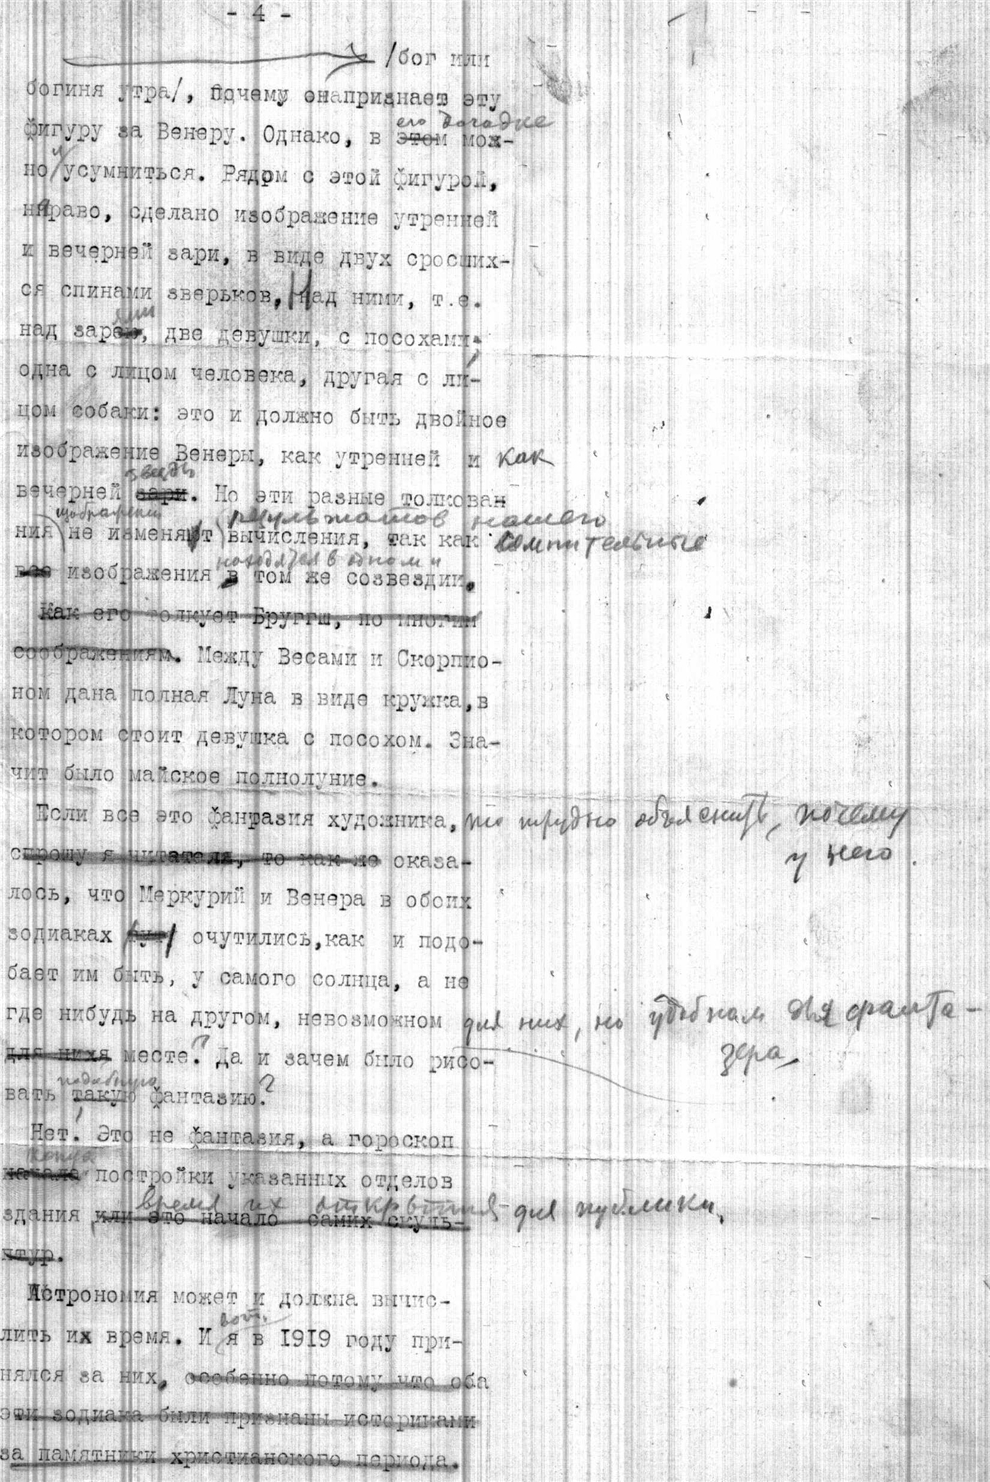 - 4 -
/бог или
богиня утра/, почему она признает эту
его догадке
фигуру за Венеру. Однако, в этом мож-
но и усумниться. Рядом с этой фигурой,
направо, сделано изображение утренней
и вечерней зари, в виде двух сросших-
ся спинами зверьков, Над ними, т.е.
над зарею, две девушки, с посохами;
одна с лицом человека, другая с ли-
цом собаки: это и должно быть двойное
изображение Венеры, как утренней и как
звезды
вечерней зари. Но эти разные толкован
изображений результатов нашего
ния не изменяют вычисления, так как сомнительные
находятся в одном и
все изображения в том же созвездии.
Как его толкует Бругш, по многим
соображениям. Между Весами и Скорпио-
ном дана полная Луна в виде кружка, в
котором стоит девушка с посохом. Зна-
чит было майское полнолуние.
Если все это фантазия художника, то трудно объяснить, почему
у него
спрошу я читателя, то как же оказа-
лось, что Меркурий и Венера в обоих
зодиаках тут очутились, как и подо-
бает им быть, у самого солнца, а не
где нибудь на другом, невозможном для них, но удобном для фанта-
зера
для них месте? Да и зачем было рисо-
подобную
вать такую фантазию?
Нет! Это не фантазия, а гороскоп
конца
начала постройки указанных отделов
время их открытия для публики.
здания или это начало самих скуль-
птур.
Астрономия может и должна вычис-
лить их время. И
вот.
я в 1919 году при-
нялся за них, особенно потому что оба
эти зодиака были признаны историками
за памятники христианского периода.